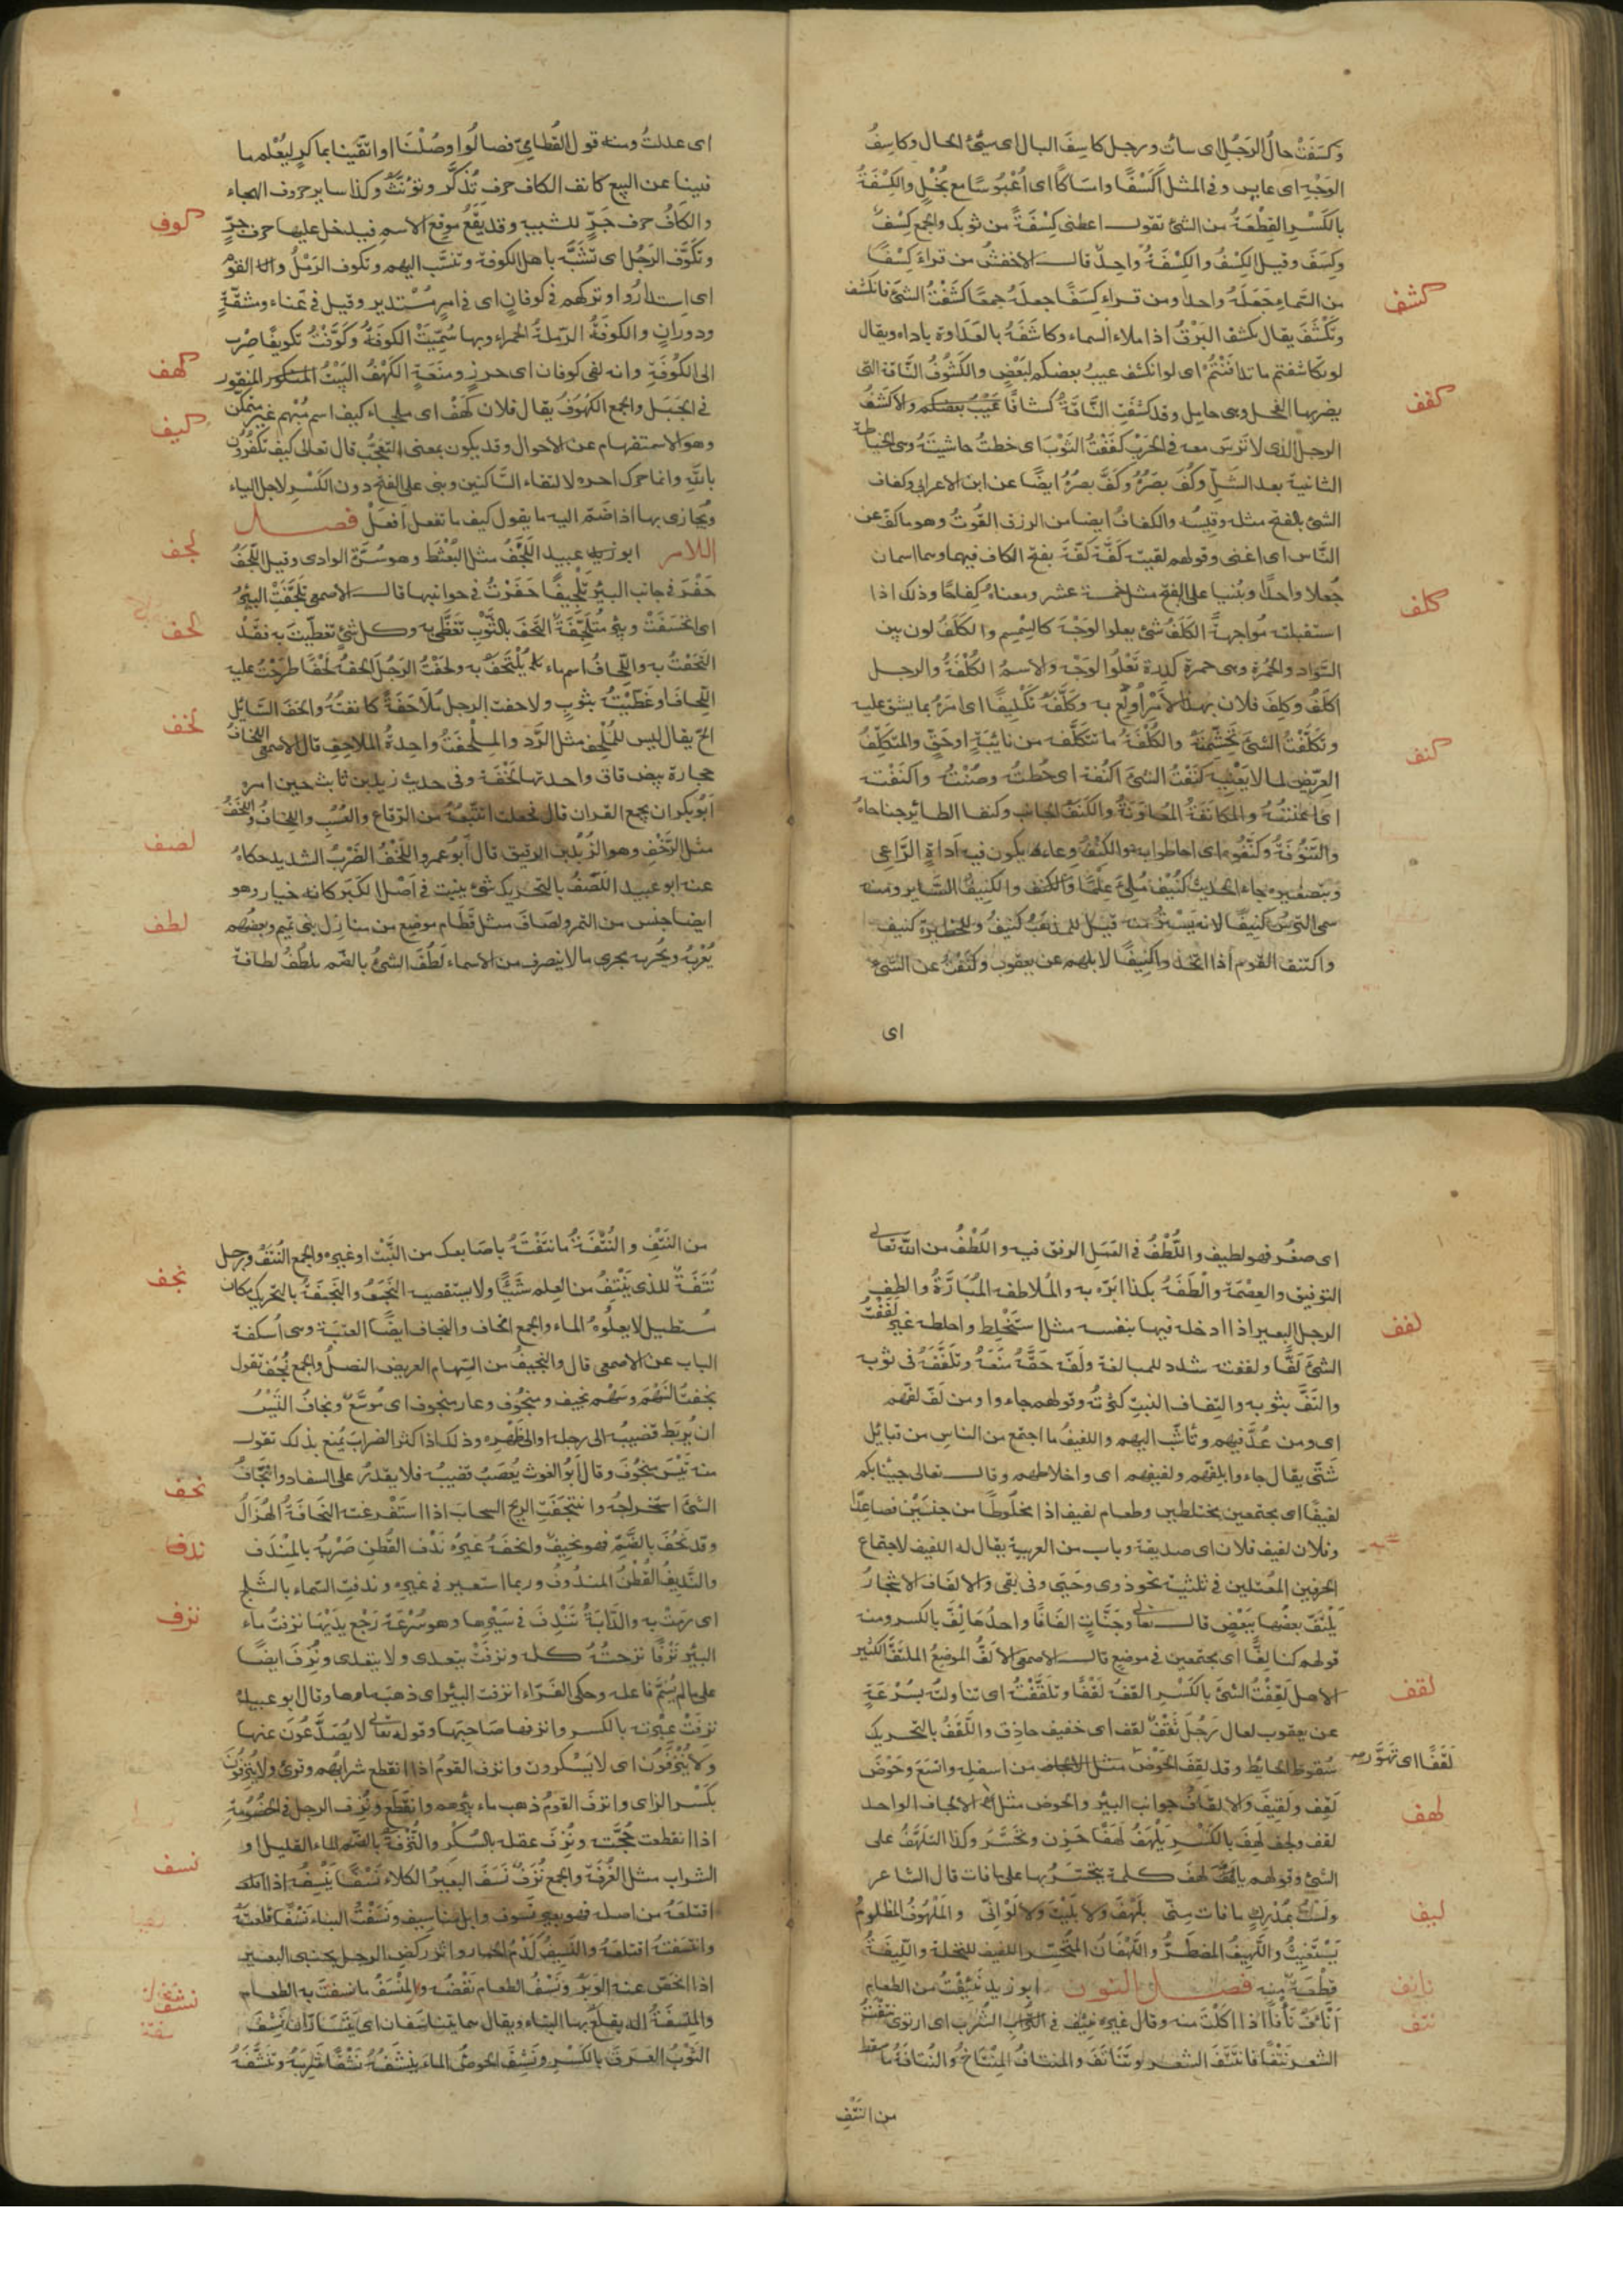 وكسفت حال الرجل اى ساءت ورجل كاسف البال اى سيئ الحال وكاسف
الوجه اى عابس وفى المثل أكسفا وامساكا اى أعبوسا مع بخل والكسفة
بالكسر القطعة من الشئ تقول اعطنى كسفة من ثوبك والجمع كسف
وكسف وقيل الكسف والكسفة واحد قال الاخفش من قرأ كسفا
كشف
من السماء جعله واحدا ومن قرأ كسفا جعله جمعا كشفت الشئ فانكشف
وتكشف يقال تكشف البرق اذا ملاء السماء وكاشفه بالعداوة باداه ويقال
لو تكاشفتم ما تدافنتم اى لو انكشف عيب بعضكم لبعض والكشوف الناقة التى
كفف
يضربها الفحل وهى حامل وقد كشفت الناقة كشافا والاكشف
الرجل الذى لا ترس معه فى الحرب كففت الثوب اى خطت حاشيته وهى الخياطة
الثانية بعد الشل وكف بصره وكف بصره ايضا عن ابن الاعرابى وكفاف
الشئ بالفتح مثله وقيسه والكفاف ايضا من الرزق القوت وهو ما كف عن
الناس اى اغنى وقولهم لقيته كفة كفة بفتح الكاف فيهما وهما اسمان
كلف
جعلا واحدا وبنيا على الفتح مثل خمسة عشر ومعناه كفاحا وذلك اذا
استقبلته مواجهة الكلف شئ يعلوا الوجه كالسمسم والكلف لون بين
السواد والحمرة وهى حمرة كدرة تعلوا الوجه والاسم الكلفة والرجل
اكلف وكلف فلان بهذا الامر أولع به وكلفه تكليفا اى امره بما يشق عليه
وتكلفت الشئ تجشمته والكلفة ما تتكلفه من نائبة او حق والمتكلف
كنف
العريض لما لا يعنيه كنفت الشئ اكنفه اى حطته وصنته واكنفته
اى اعنته والمكانفة المعاونة والكنف الجانب وكنفا الطائر جناحاه
وكنفوه اى احاطوا به والكنف وعاء يكون فيه اداة الراعى
وبتصغيره جاء الحديث كنيف ملئ علما والكنيف الساتر ومنه
سمى الترس كنيفا لانه يستر ومنه قيل للمذهب كنيف وللحظيرة كنيف
واكتنف القوم اذا اتخذوا كنيفا لابلهم عن يعقوب وكنفت عن الشئ
اى
اى عدلت ومنه قول القطامى فصالوا وصلنا واتقينا بماكر ليعلم ما
فينا عن البيع كانف الكاف حرف تذكر وتؤنث وكذا ساير حروف الهجاء
كوف
والكاف حرف جر للتشبيه وقد يقع موقع الاسم فيدخل عليها حرف جر
وتكوف الرجل اى تشبه باهل الكوفة وتنسب اليهم وتكوف الرمل والقوم
اى استداروا وتركهم فى كوفان اى فى امر مستدير وقيل فى عناء ومشقة
ودوران والكوفة الرملة الحمراء وبها سميت الكوفة وكوفت تكويفا صرت
كهف
الى الكوفة وانه لفى كوفان اى حرز ومنعة الكهف البيت المنقور
كيف
فى الجبل والجمع الكهوف يقال فلان كهف اى ملجاء كيف اسم مبهم غير متمكن
وهو للاستفهام عن الاحوال وقد يكون بمعنى التعجب قال تعالى كيف تكفرون
بالله وانما حرك اخره لالتقاء الساكنين وبنى على الفتح دون الكسر لاجل الياء
ويجازى بها اذا ضم اليه ما يقول كيف ما تفعل أفعل فصل
لجف
اللام ابو عبيد اللجف مثل البعثط وهو سرة الوادى وقيل اللجف
حفر فى جانب البئر تلجيفا حفرت فى جوانبها قال الاصمعى تلجفت البئر
لحف
اى انخسفت وبئر متلجفة التحف بالثوب تغطى به وكل شئ تغطيت به فقد
التحفت به واللحاف اسم ماء يلتحف به ولحفت الرجل الحفه لحفا طرحت عليه
اللحاف او غطيته بثوب ولاحفت الرجل ملاحفة كانفته والحف السائل
لخف
الح يقال ليس للملحف مثل الرد والملحفة واحدة الملاحف قال الاصمعى اللخاف
حجارة بيض رقاق واحدتها لخفة وفى حديث زيد بن ثابت حين امره
ابو بكر ان يجمع القران قال فجعلت اتتبعه من الرقاع والعسب واللخاف واللخف
لصف
مثل الرخف وهو الزبد الرقيق قال ابو عمرو اللخف الضرب الشديد حكاه
عنه ابو عبيد اللصف بالتحريك شئ ينبت فى اصل الكبر كانه خيار وهو
لطف
ايضا جنس من التمر ولصاف مثل قطام موضع من منازل بنى تميم وبعضهم
يعربه ويجريه مجرى ما لا ينصرف من الاسماء لطف الشئ بالضم يلطف لطافة
اى صغر فهو لطيف واللطف فى العمل الرفق فيه واللطف من الله تعالى
التوفيق والعصمة والطفه بكذا ابره به والملاطفة المبارة والطف
لفف
الرجل البعير اذا ادخله فيها بنفسه مثل استخلط واخلطه غيره لففت
الشئ لفا ولففته شدد للمبالغة ولفه حقه منعه وتلفف فى ثوبه
والتف بثوبه والتفاف النبت كثرته وقولهم جاءوا ومن لف لفهم
اى ومن عد فيهم وتأشب اليهم واللفيف ما اجتمع من الناس من قبائل
شتى يقال جاءوا بلفهم ولفيفهم اى واخلاطهم وقال تعالى جئنا بكم
لفيفا اى مجتمعين مختلطين وطعام لفيف اذا مخلوطا من جنسين فصاعدا
وفلان لفيف فلان اى صديقه وباب من العربية يقال له اللفيف لاجتماع
الحرفين المعتلين فى ثلثيه نحو ذوى وحيى وفى بقى والالفاف الاشجار
يلتف بعضها ببعض قال تعالى وجنات الفافا واحدها لف بالكسر ومنه
قولهم كنا لفا اى مجتمعين فى موضع قال الاصمعى الالف الموضع الملتف الكثير
لقف
الاهل لقفت الشئ بالكسر القفه لقفا وتلقفته اى تناولته بسرعة
عن يعقوب يقال رجل ثقف لقف اى خفيف حاذق واللقف بالتحريك
سقوط الحايط وقد لقف الحوض لقفا اى تهور من اسفله واتسع وحوض
لهف
لقف ولقيف والالقاف جوانب البئر والحوض مثل الالجاف الواحد
لقف ولجف لهف بالكسر يلهف لهفا حزن وتحسر وكذا التلهف على
الشئ وقولهم يا لهف كلمة يتحسر بها على ما فات قال الشاعر
ليف
ولست بمدرك ما فات منى بلهف ولا بليت ولا لو انى والملهوف المظلوم
يستغيث واللهيف المضطر واللهفان المتحسر الليف للنخلة والليفة
نايف
قطعة منه فصل النون ابو زيد نئفت من الطعام
نتف
أنأف نأفا اذا اكلت منه وقال غيره نئف فى الشرب اى ارتوى نتفت
الشعر نتفا فانتتف الشعر وتناتف والمنتاف المنتاخ والنتافة ما سقط
من النتف
من النتف والنتفة ما نتفته باصابعك من النبت او غيره والجمع النتف ورجل
نجف
نتفة للذى ينتف من العلم شيئا ولا يستقصيه النجف والنجفة بالتحريك مكان
مستطيل لا يعلوه الماء والجمع نجاف والنجاف ايضا العتبة وهى أسكفة
الباب عن الاصمعى قال والنجيف من السهام العريض النصل والجمع نجف تقول
نجفت السهم وسهم نجيف ومنجوف وغار منجوف اى موسع ونجاف التيس
ان يربط قضيبه الى رجله او الى ظهره وذلك اذا كثر الضراب يمنع بذلك تقول
نحف
منه تيس منجوف وقال أبو الغوث يعصب قضيبه فلا يقدر على السفاد وانتجاف
الشئ استخراجه وانتجفت الريح السحاب اذا استفرغته النحافة الهزال
ندف
وقد نحف بالضم فهو نحيف وانحفه غيره ندف القطن ضربه بالمندف
والنديف القطن المندوف وربما استعير فى غيره وندفت السماء بالثلج
نزف
اى رمت به والدابة تندف فى سيرها وهو سرعة رجع يديها نزفت ماء
البئر نزفا نزحته كله ونزفت يتعدى ولا يتعدى ونزف ايضا
على ما لم يسم فاعله وحكى الفراء انزفت البئر اى ذهب ماءها وقال ابو عبيدة
نزفت عبرته بالكسر وانزفها صاحبها وقوله تعالى لا يصدعون عنها
ولا ينزفون اى لا يسكرون وانزف القوم اذا انقطع شرابهم وقرئ ولا ينزفون
بكسر الزاى وانزف القوم ذهب ماء بئرهم وانقطع ونزف الرجل فى الخصومة
اذا انقطعت حجته ونزف عقله بالسكر والنزفة بالضم الماء القليل او
نسف
الشراب مثل الغرفة والجمع نزف نسف البعير الكلاء نسفا ينسفه اذا
اقتلعه من اصله وابل مناسيف ونسفت البناء نسفا قلعته
وانتسفته اقتلعته والنسيف كدم الحمار واثر ركض الرجل بجنبى البعير
نشف
اذا انحص عنه الوبر ونسف الطعام نفضه والمنسف ما نسفت به الطعام
والمنسفة الة يقلع بها البناء ويقال هما يتناسفان اى يتسارّان نشف
الثوب العرق بالكسر ونشف الحوض الماء ينشفه نشفا شربه وتنشفه